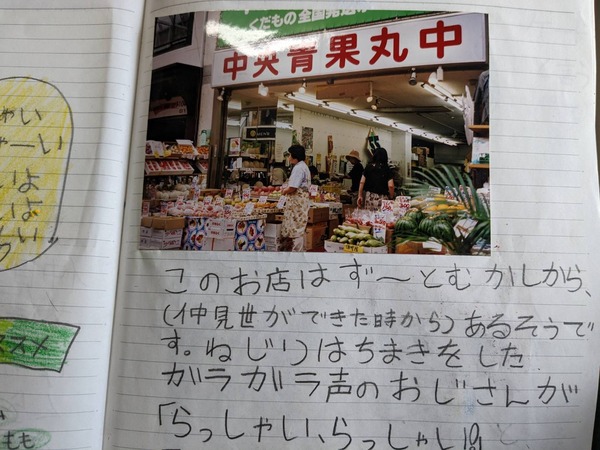 ゃい
ゃーい
いよ
いばい
スメ
もも
くだもの全国発送
中央青果丸中
このお店はず〜とむかしから、
(仲見世ができた時から)あるそうで
す。ねじりはちまきをした
ガラガラ声のおじさんが
「らっしゃい、らっしゃい!!